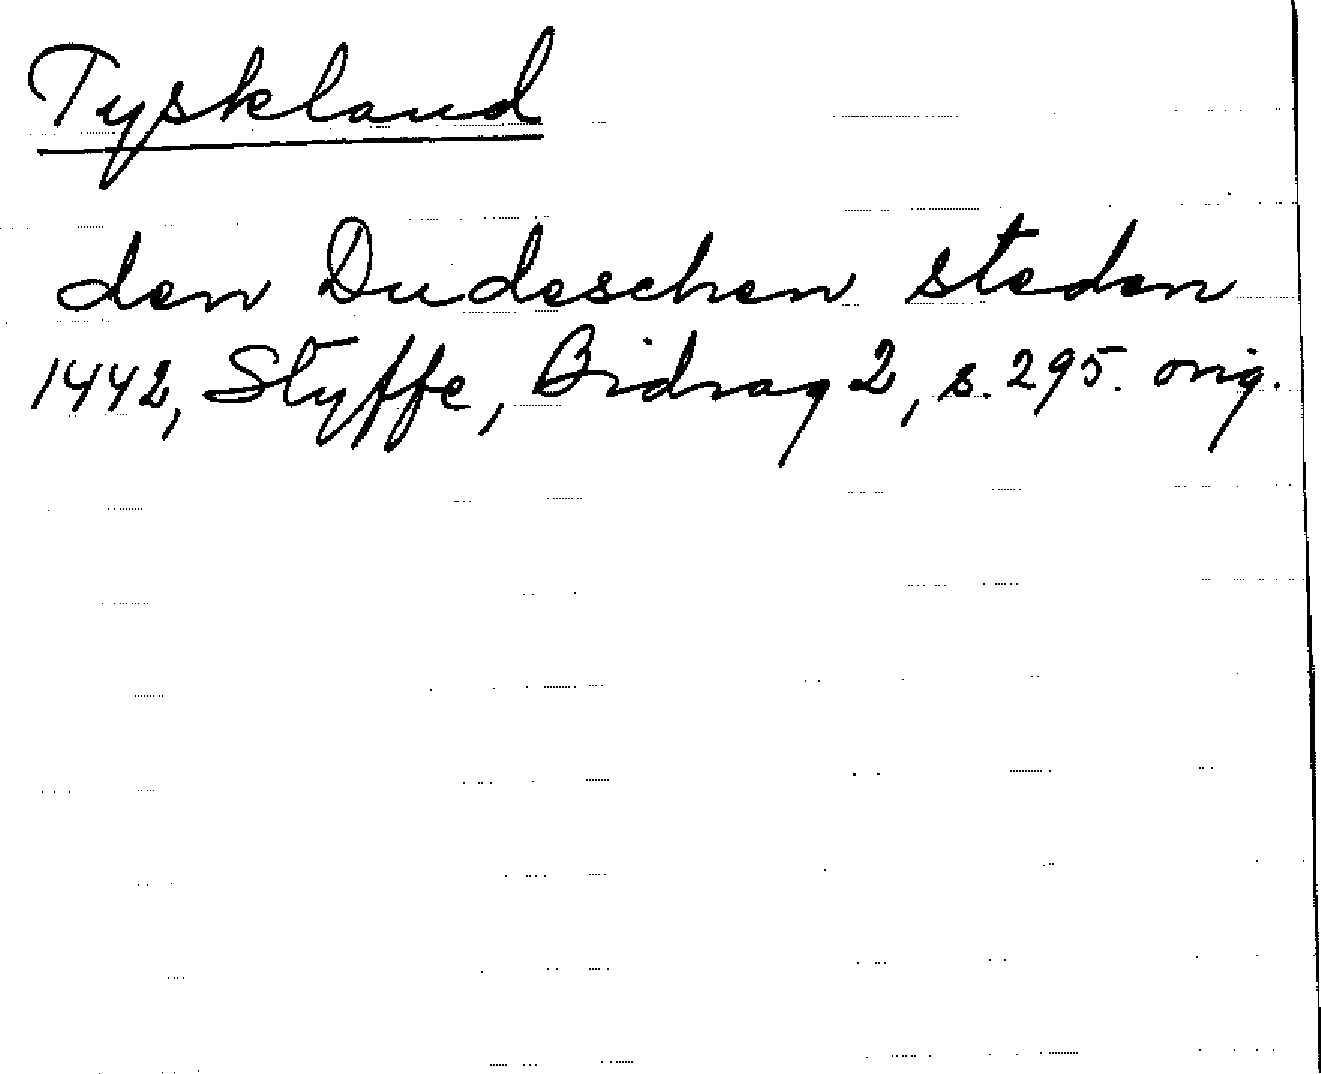 Tyskland
den Dudeschen steden
1442, Styffe, Bidrag 2, s. 295. orig.